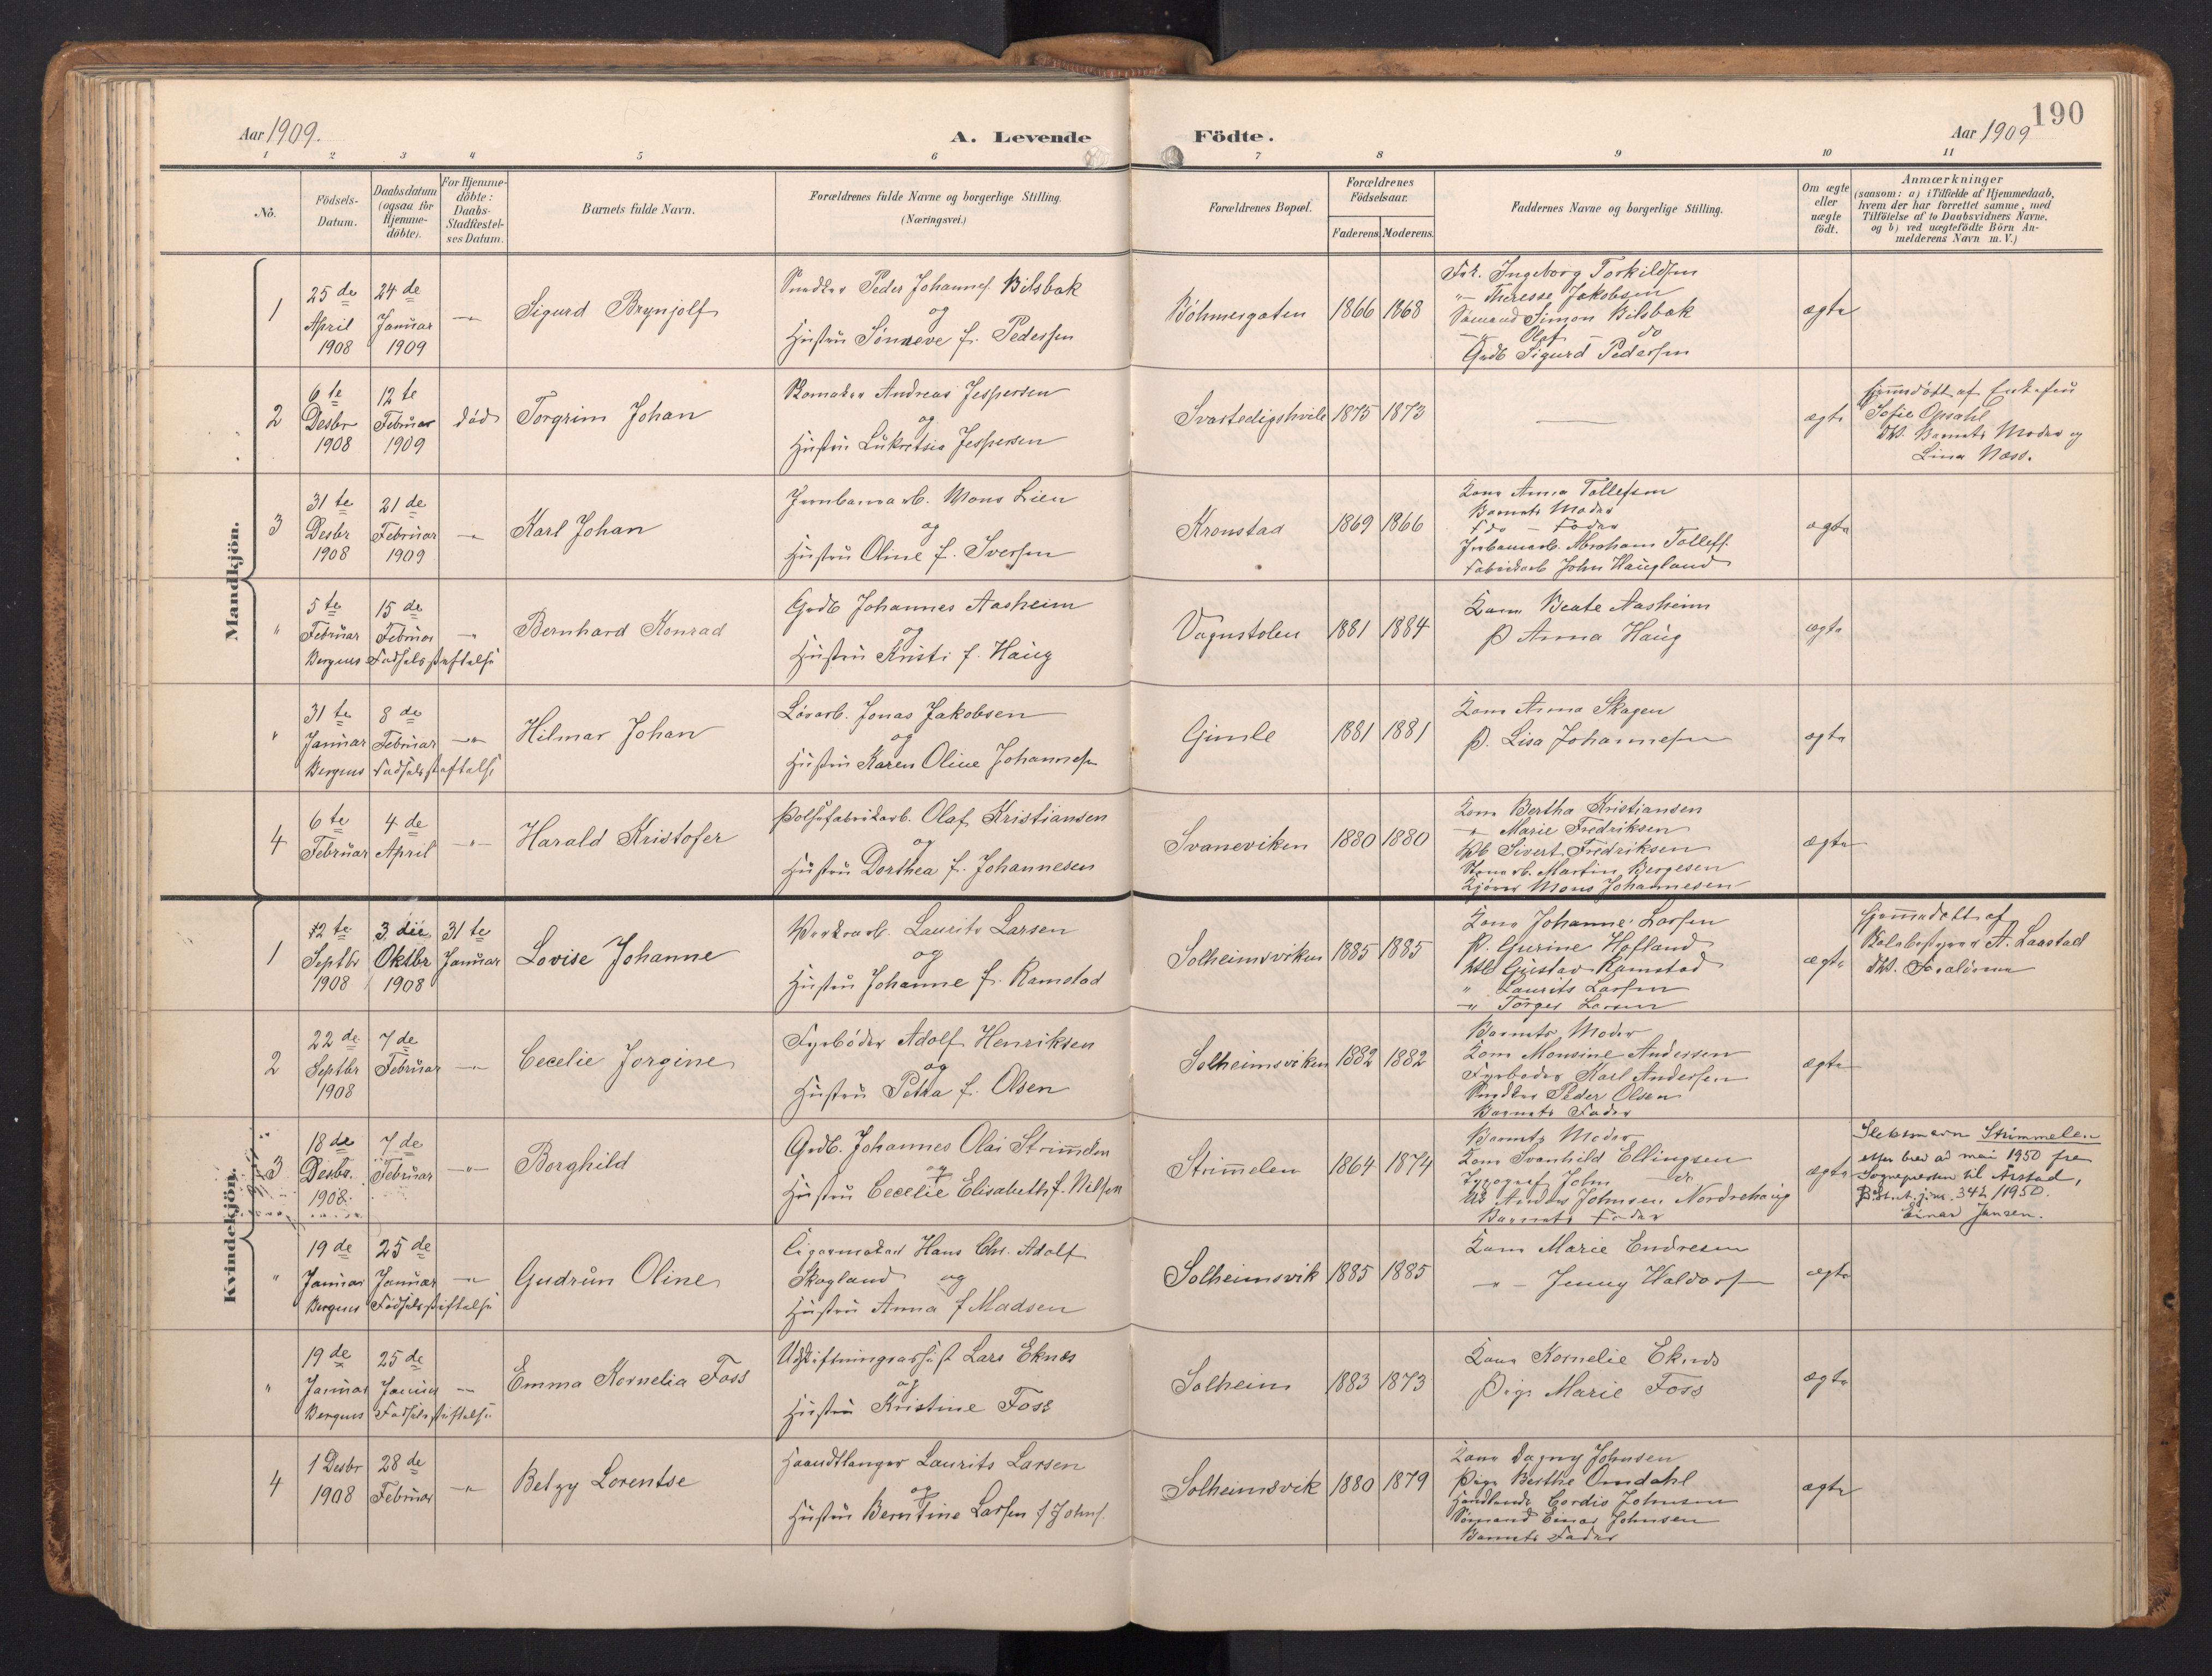 190
Aar 1909.
A. Levende Födte.
Aar 1909
1 2 3 4 5 6 7 8 9 10 11
No.
Födsels-
Datum.
Daabsdatum
(ogsaa for
Hjemme-
döbte).
For Hjemme-
döbte:
Daabs-
Stadfæstel-
ses Datum.
Barnets fulde Navn.
Forældrenes fulde Navne og borgerlige Stilling.
(Næringsvei.)
Forældrenes Bopæl.
Forældrenes
Födselsaar.
Faderens. Moderens.
Faddernes Navne og borgerlige Stilling.
Om ægte
eller
uægte
födt.
Anmærkninger
(saasom: a) i Tilfælde af Hjemmedaab,
hvem der har forrettet samme, med
Tilföielse af to Daabsvidners Navne.
og b) ved uægtefödte Börn An-
melderens Navn m. V.)
Mandkjön.
1
25 de
April
1908
24 de
Januar
1909
—"—
Sigurd Brynjolf
Snedker Peder Johannes. Bilsbak
og
Hustru Sönneve f. Pedersen
Böhmergaten
1866
1868
Frk. Ingeborg Torkildsen
"— Theresse Jakobsen
Sömand Simon Bilsbak
—"— Olaf — do
Grdb Sigurd Pedersen
ægte
2
6 te
Desbr
1908
12 te
Februar
1909
död
Torgrim Johan
Skomaker Andreas Jespersen
og
Hustru Lukretsia Jespersen
Svartedigshvile
1875
1873
ægte
Hjemmedöbt af Enkefru
Sofie Opsahl
DV. Barnets Moder og
Lina Næss.
3
31 te
Desbr
1908
21 de
Februar
1909
—"—
Karl Johan
Jernbanearb. Mons Lien
og
Hustru Oline f. Iversen
Kronstad
1869
1866
Kone Anna Tollefsen
Barnets Moder
do — Fader
Jrnbanearb. Abraham Tollefs.
Fabrikarb John Haugland
ægte
"
5 te
Februar
15 de
Februar
—"—
Bergens Födselsstiftelse
Bernhard Konrad
Grdb Johannes Aasheim
og
Hustru Kristi f. Haug
Vognstolen
1881
1884
Kone Beate Aasheim
P Anna Haug
ægte
"
31 te
Januar
8 de
Februar
—"—
Bergens Födselsstiftelse
Hilmar Johan
Lösarb. Jonas Jakobsen
og
Hustru Karen Oline Johannesen
Gimle
1881
1881
Kone Anna Skagen
P. Lisa Johannesen
ægte
4
6 te
Februar
4 de
April
—"—
Harald Kristofer
Pölsefabrikarb. Olaf Kristiansen
og
Hustru Dorthea f. Johannesen
Svaneviken
1880
1880
Kone Bertha Kristiansen
—"— Marie Fredriksen
Sivert Fredriksen
Martin Bergesen
Kjörer Mons Johannesen
ægte
Kvindekjön.
1
12 te
Septbr
1908
3 die
Oktbr
1908
31 te
Januar
Lovise Johanne
Værksarb. Laurits Larsen
og
Hustru Johanne f. Ramstad
Solheimsviken
1885
1885
Kone Johanne Larsen
P. Gurine Hofland
Gustav Ramstad
" Laurits Larsen
—"— Torger Larsen
ægte
Hjemmedöbt af
A. Laastad
2
22 de
Septbr
1908
7 de
Februar
—"—
Cecelie Jorgine
Fyrböder Adolf Henriksen
og
Hustru Petra f. Olsen
Solheimsviken
1882
1882
Barnets Moder
Kone Monsine Andersen
Fyrböder Karl Andersen
Snedker Peder Olsen
Barnets Fader
ægte
3
18 de
Desbr.
1908.
7 de
Februar
—"—
Borghild
Grdb. Johannes Olai Strimmelen
og
Hustru Cecelie Elisabeth f. Nilsen
Strimmelen
1864
1874
Barnets Moder
Kone Svanhild Ellingsen
Typograf John — do
Anders Johnsen Nordrehaug
Barnets Fader
ægte
Slektsnavn Strimmelen
etter brev av mai 1950 fra
Sognepresten til Årstad,
B. St. ark. j.nr. 342/1950.
Einar Jansen.
"
19 de
Januar
25 de
Januar
—"—
Bergens Födselsstiftelse
Gudrun Oline
Cigarmaker Hans Chr. Adolf
Skogland og
Hustru Anna f Madsen
Solheimsvik
1885
1885
Kone Marie Endresen
—"— Jenny Haldorsen
ægte
"
19 de
Januar
25 de
Januar
—"—
Bergens Födselsstiftelse
Emma Kornelia Foss
Udskiftningsassist Lars Eknes
og
Hustru Kristine Foss
Solheim
1883
1873
Kone Kornelie Eknes
Pige Marie Foss
ægte
4
1 Desbr
1908
28 de
Februar
—"—
Betzy Lorentse
Haandlanger Laurits Larsen
og
Hustru Berntine Larsen f Johns.
Solheimsvik
1880
1879
Kone Dagny Johnsen
Pige Berthe Omdahl
Handlende Cordis Johnsen
Sömand Einar Johnsen
Barnets Fader
ægte